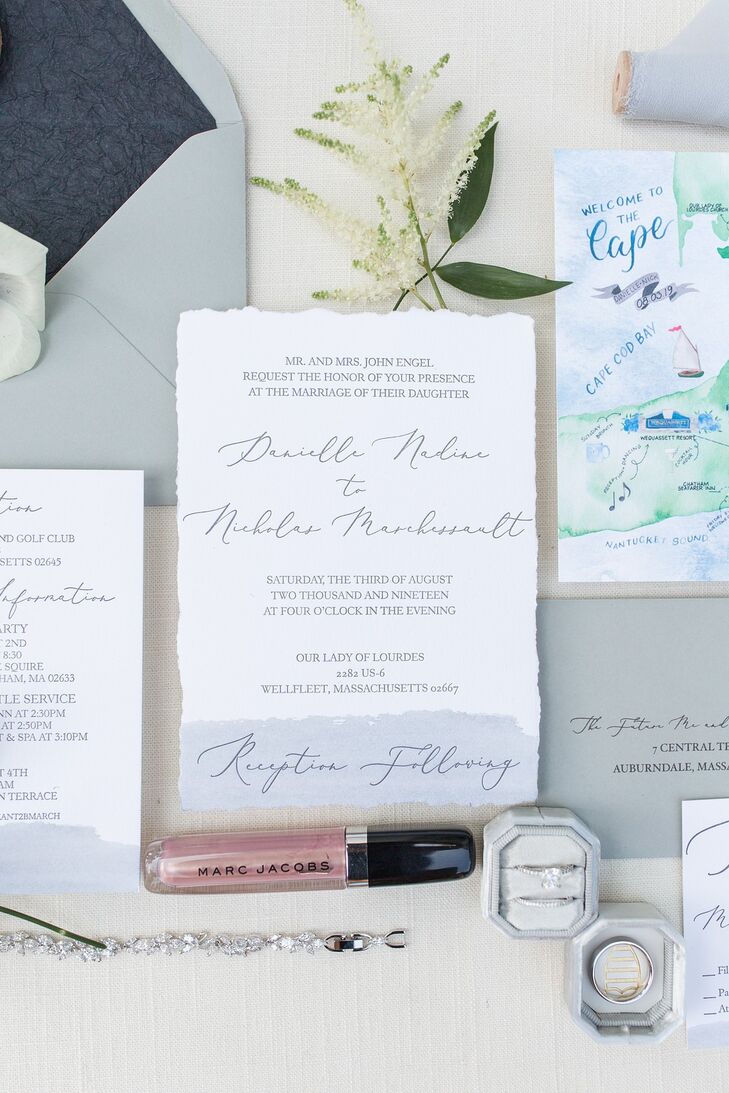 WELCOME TO
THE
Cape
OUR LADY OF
LOURDES CHURCH
DANIELLE + NICK
08.03.19
CAPE COD BAY
SUNDAY
BRUNCH
WEQUASSETT
WEQUASSETT RESORT
RECEPTION + DANCING
COCKTAIL
HOUR
CHATHAM
SEAFARER INN
FRIDAY
NANTUCKET SOUND
MR. AND MRS. JOHN ENGEL
REQUEST THE HONOR OF YOUR PRESENCE
AT THE MARRIAGE OF THEIR DAUGHTER
Danielle Nadine
to
Nicholas Marchessault
SATURDAY, THE THIRD OF AUGUST
TWO THOUSAND AND NINETEEN
AT FOUR O'CLOCK IN THE EVENING
OUR LADY OF LOURDES
2282 US-6
WELLFLEET, MASSACHUSETTS 02667
Reception Following
ND GOLF CLUB
SETTS 02645
Information
ARTY
T 2ND
8:30
E SQUIRE
HAM, MA 02633
TLE SERVICE
NN AT 2:30PM
AT 2:50PM
T & SPA AT 3:10PM
T 4TH
AM
N TERRACE
ANT2BMARCH
The Future Mr and
7 CENTRAL TE
AUBURNDALE, MASSA
MARC JACOBS
M
Fil
Pa
At